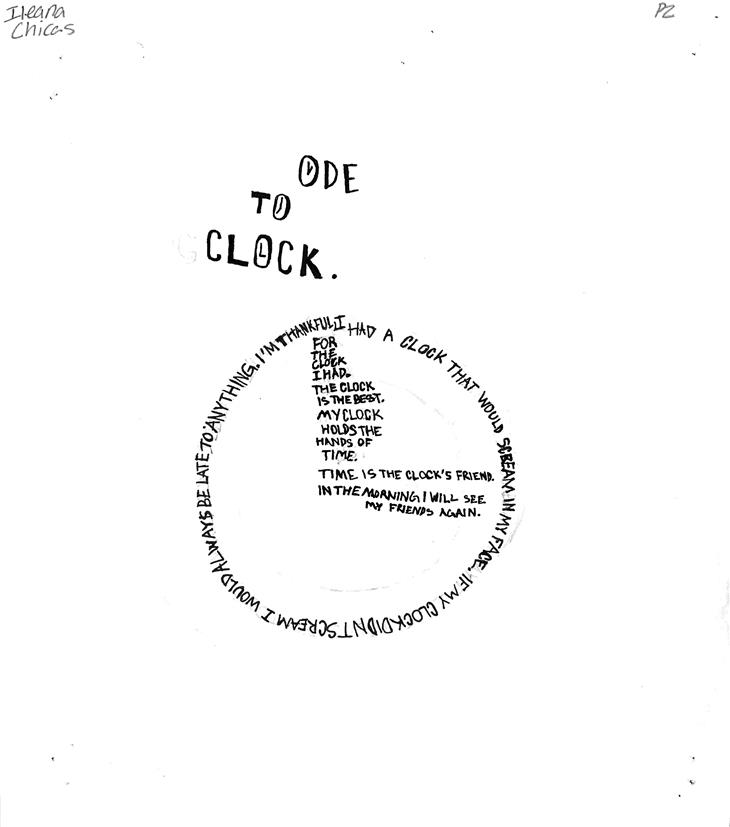 Ileana
Chicas
P2
ODE
TO
CLOCK.
I HAD A CLOCK THAT WOULD SCREAM IN MY FACE. IF MY CLOCK DIDNT SCREAM I WOULD ALWAYS BE LATE TO ANYTHING. I'M THANKFUL
FOR
THE
CLOCK
I HAD.
THE CLOCK
IS THE BEST.
MY CLOCK
HOLDS THE
HANDS OF
TIME.
TIME IS THE CLOCK'S FRIEND.
IN THE MORNING I WILL SEE
MY FRIENDS AGAIN.